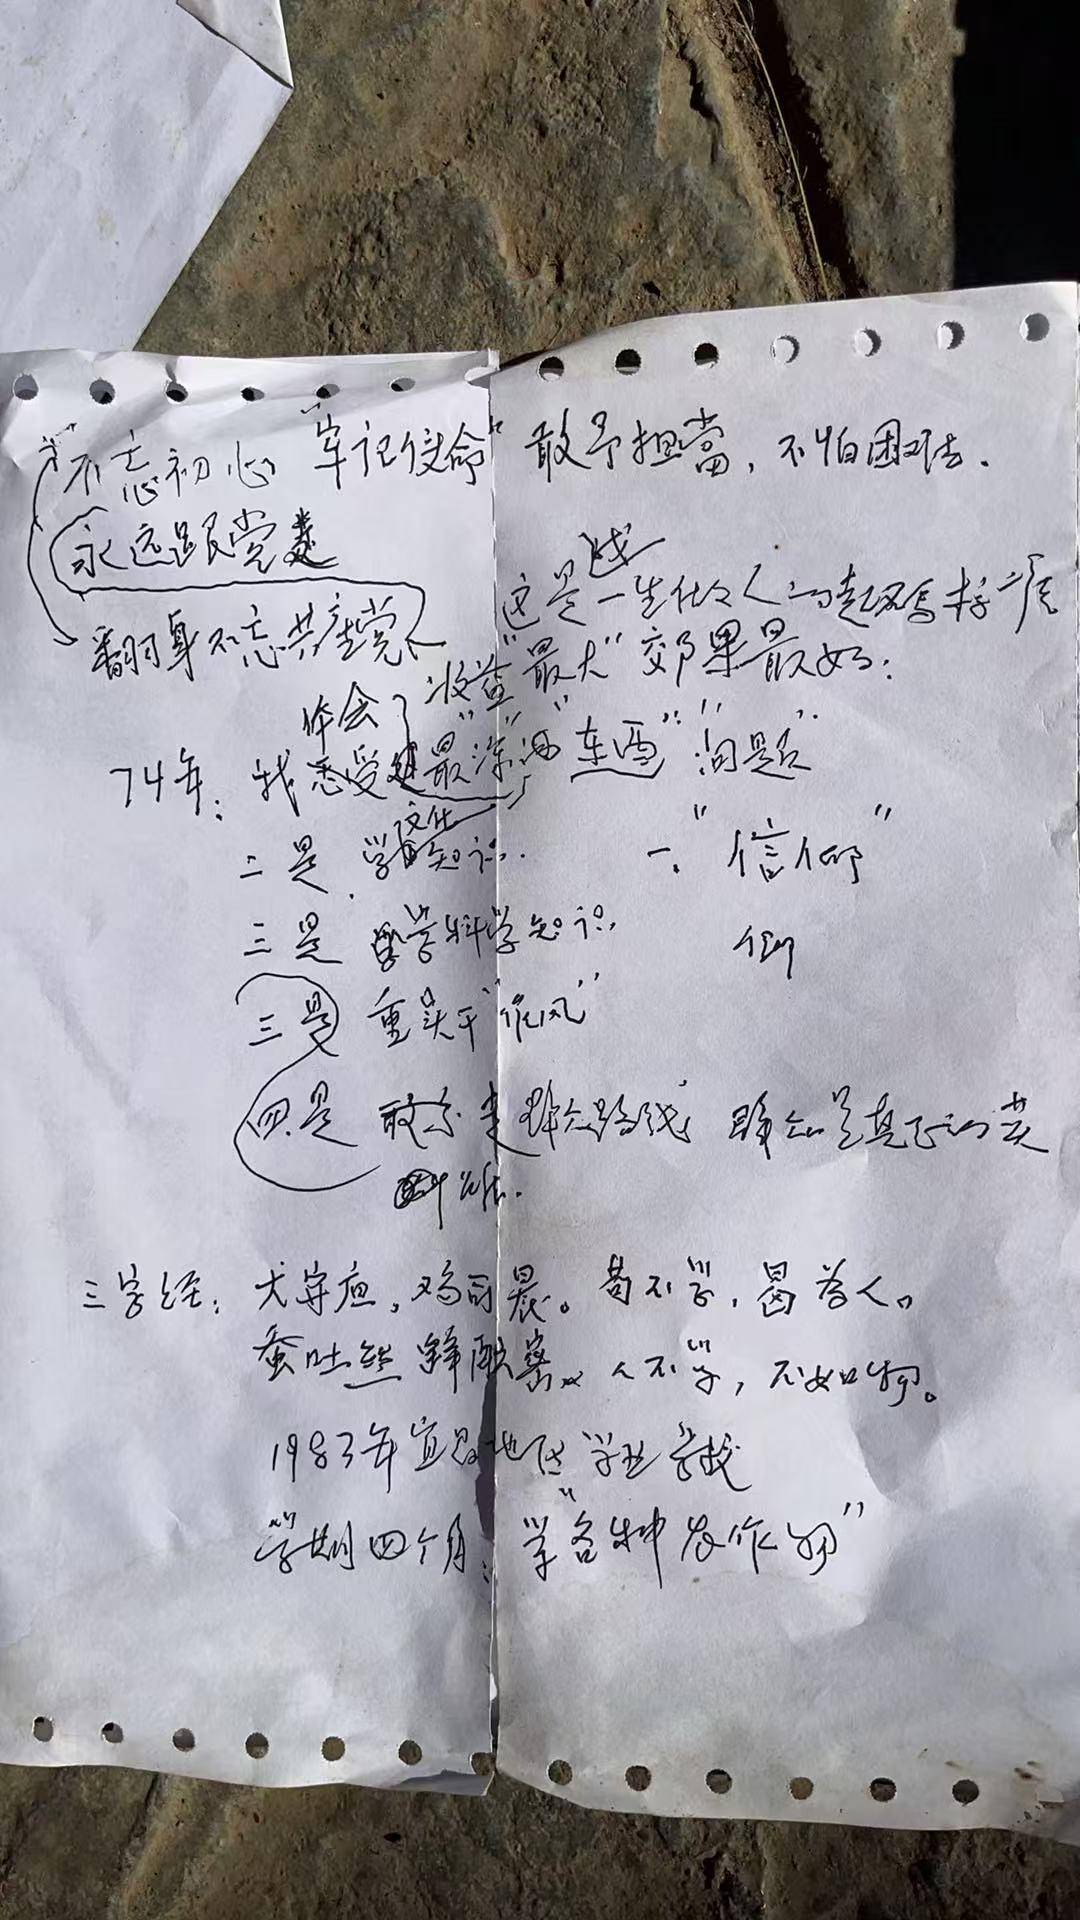 "不忘初心 "牢记使命" 敢于担當,不怕困难.
永远跟党走
这是我一生做人的
翻身不忘共产党人
收益"最大"效果最好:
体会
74年:我 受 最深的"东西":"问题".
文化
二是.学 知识.
一."信仰"
三是 学科学知识.
仰
三是 重实干"作风"
四.是 敢于走群众路线 群众是真正的英
三字经:犬守夜,鸡司晨。苟不学,曷为人。
蚕吐丝 蜂酿蜜 人不学,不如物。
1983年宜昌地区 学校
学期四个月:学"各种农作物"